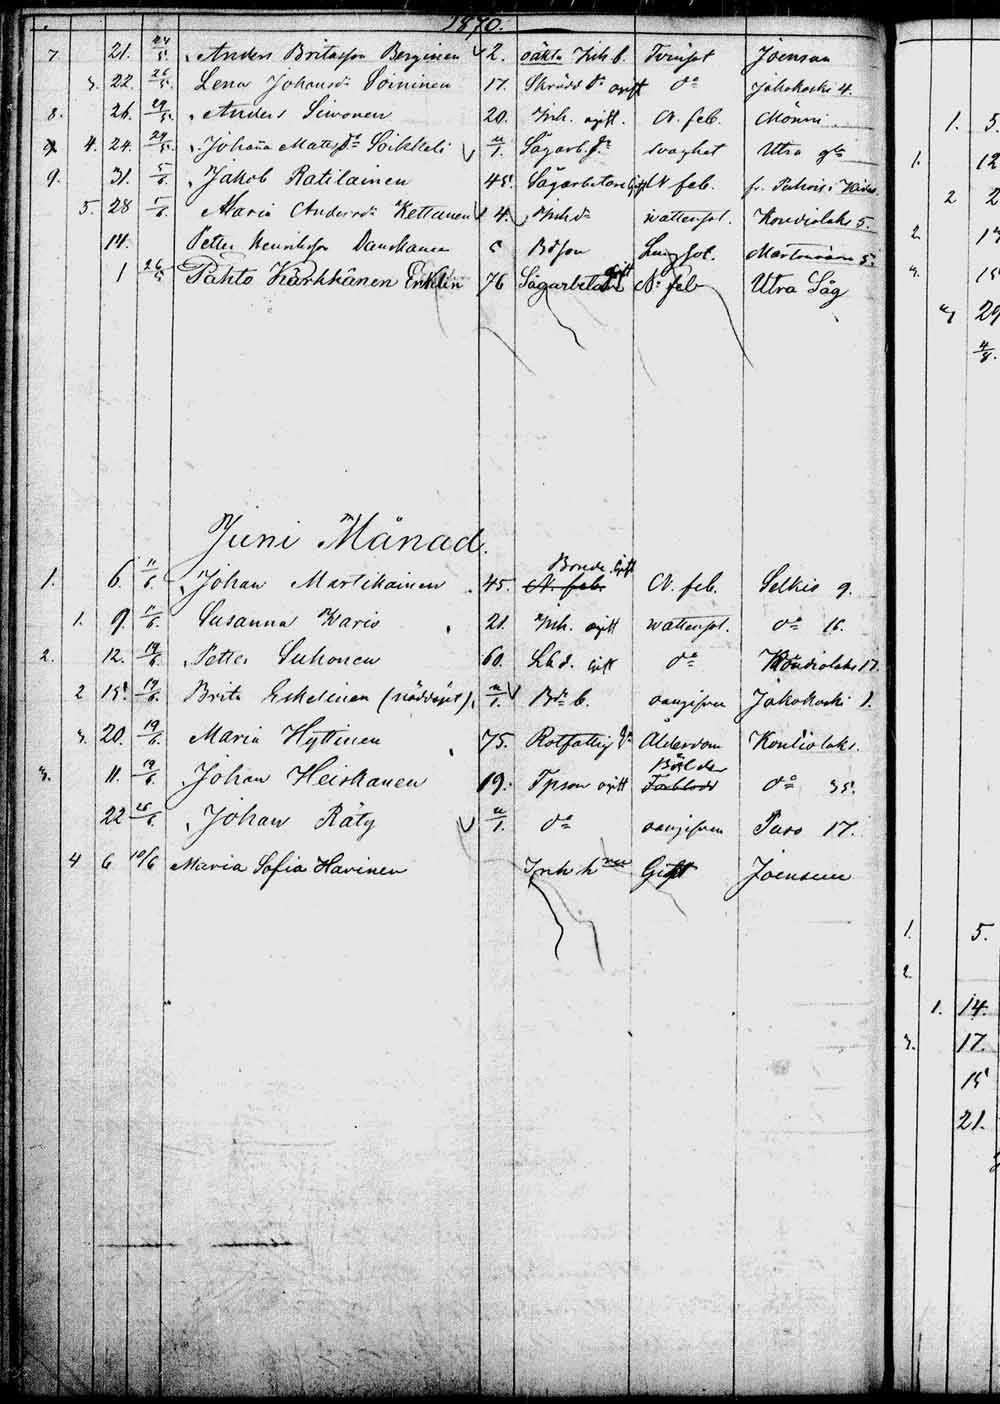 1870.
7. 21. 24/5. Anders Britasson Berginen 2. oäkta Inh. b. Tvinsot Joensuu
3. 22. 26/5. Lena Johansdr Soininen 17. Skrädd. dr ogift do Jakokoski 4.
8. 26. 29/5. Anders Simonen 20. Inh. ogift. N. feb. Mönni
4. 24. 29/5. Johana Matsdr Soikkeli 11/1. Sågarb. dr svaghet Utra
9. 31. 5/6. Jakob Ratilainen 45. Sågarbetare gift N feb.
5. 28 5/6. Maria Andersdr Kettunen 4. Inh. dr wattensot. Kondiolaks 5.
14. Petter Henriksson Danskanen 5 Bdson Lungsot. 5.
1 26/5 Pahto Kärkkänen Enklin 76 Sågarbetare gift N. feb Utra Såg
Juni Månad.
1. 6. 11/6. Johan Martikainen 45. Bonde gift N. feb. Selkie 9.
1. 9. 11/6. Susanna Karvo 21. Inh. ogift wattensot. do 16.
2. 12. 19/6. Petter Suhonen 60. Lbd. gift do Kondiolaks 17.
2 15. 19/6. Brita Eskelinen (nöddöpt) 11/1. Bdr b. oangifven Jakokoski 1.
3. 20. 19/6. Maria Hyttinen 75. Rotfattig dr Ålderdom Kontiolaks.
3. 11. 19/6. Johan Heiskanen 19. Tpson ogift Bölder do 35.
22 26/6. Johan Räty 11/1. do oangifven Paso 17.
4 6 10/6 Maria Sofia Havinen Inh h Gift Joensuu
1. 5.
1. 12
2 2
2. 17
3. 15
3 29
4/8.
1. 5.
2.
1. 14.
3. 17.
15
21.